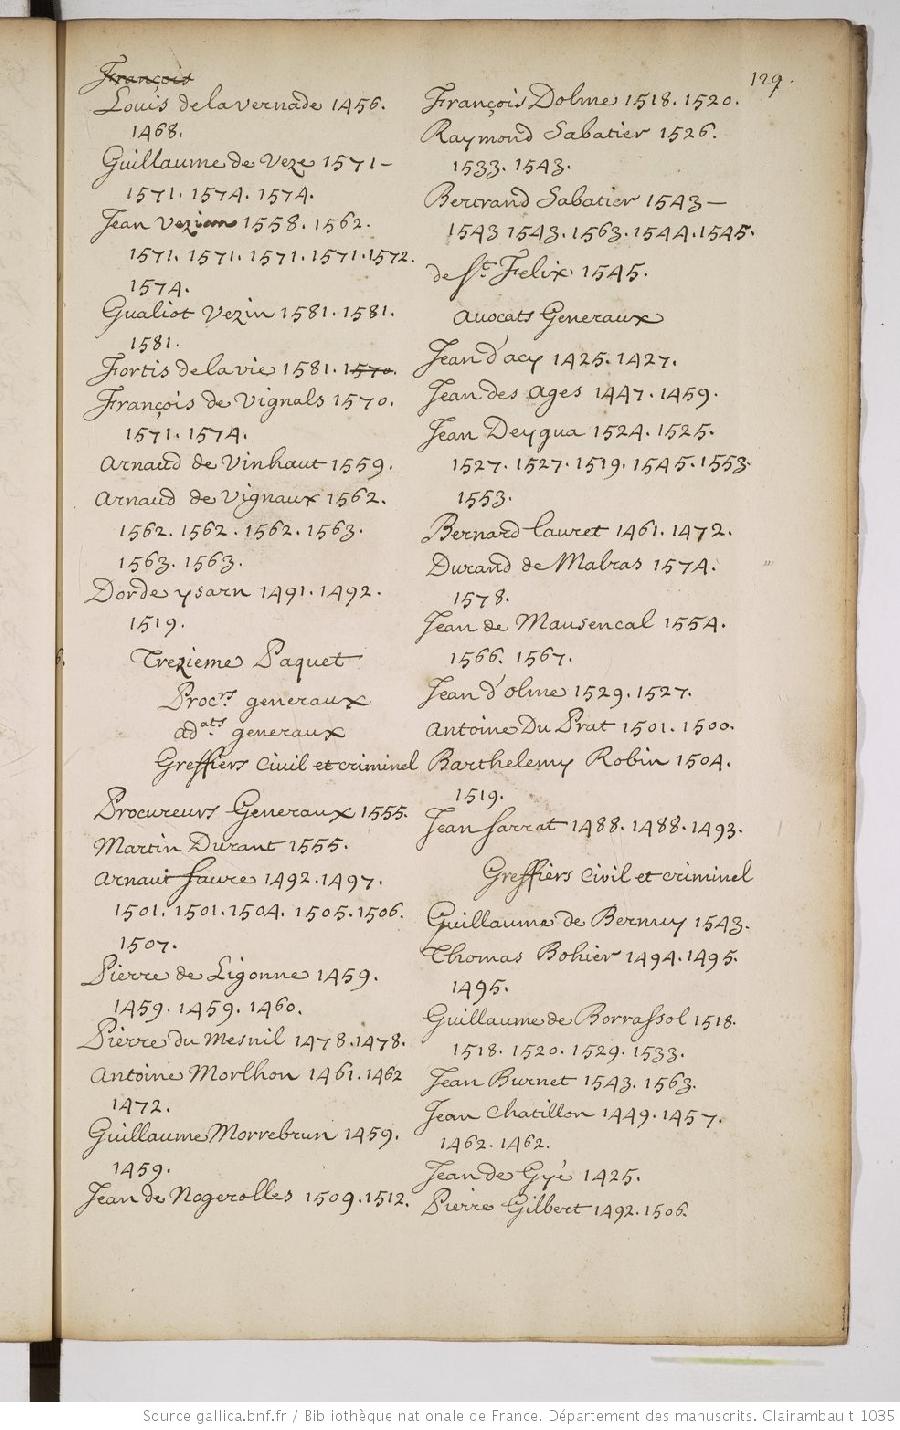 129.
François
Louis de la vernade 1456.
1468.
Guillaume de Veze 1571-
1571. 1574. 1574.
Jean Vezian 1558. 1562.
1571. 1571. 1571. 1571. 1572.
1574.
Gualiot Vezin 1581. 1581.
1581.
Fortis de la vie 1581. 1570.
François de Vignals 1570.
1571. 1574.
Arnaud de Vinhaut 1559.
Arnaud de Vignaux 1562.
1562. 1562. 1562. 1563.
1563. 1563.
Dorde ysarn 1491. 1492.
1519.
Trezieme Paquet
Procrs generaux
adats generaux
Greffiers Civil et criminel
Procureurs Generaux 1555.
Martin Durant 1555.
Arnaut faure 1492. 1497.
1501. 1501. 1504. 1505. 1506.
1507.
Pierre de Ligonne 1459.
1459. 1459. 1460.
Pierre du Mesnil 1478. 1478.
Antoine Morlhon 1461. 1462
1472.
Guillaume Morrebrun 1459.
1459.
Jean de Nogerolles 1509. 1512.
François Dolme 1518. 1520.
Raymond Sabatier 1526.
1533. 1543.
Bertrand Sabatier 1543-
1543 1543. 1563. 1544. 1545.
de St. Felix 1545.
Avocats Generaux
Jean d'acy 1425. 1427.
Jean des Ages 1447. 1459.
Jean Deygua 1524. 1525.
1527. 1527. 1519. 1545. 1553.
1553.
Bernard lauret 1461. 1472.
Durand de Malras 1574.
1578.
Jean de Mausencal 1554.
1566. 1567.
Jean d'olme 1529. 1527.
Antoine Du Prat 1501. 1500.
Barthelemy Robin 1504.
1519.
Jean sarrat 1488. 1488. 1493.
Greffiers Civil et criminel
Guillaume de Bernuy 1543.
Thomas Bohier 1494. 1495.
1495.
Guillaume de Borrassol 1518.
1518. 1520. 1529. 1533.
Jean Burnet 1543. 1563.
Jean Chatillon 1449. 1457.
1462. 1462.
Jean de Gyé 1425.
Pierre Gilbert 1492. 1506.
Source gallica.bnf.fr / Bibliothèque nationale de France. Département des manuscrits. Clairambault 1035